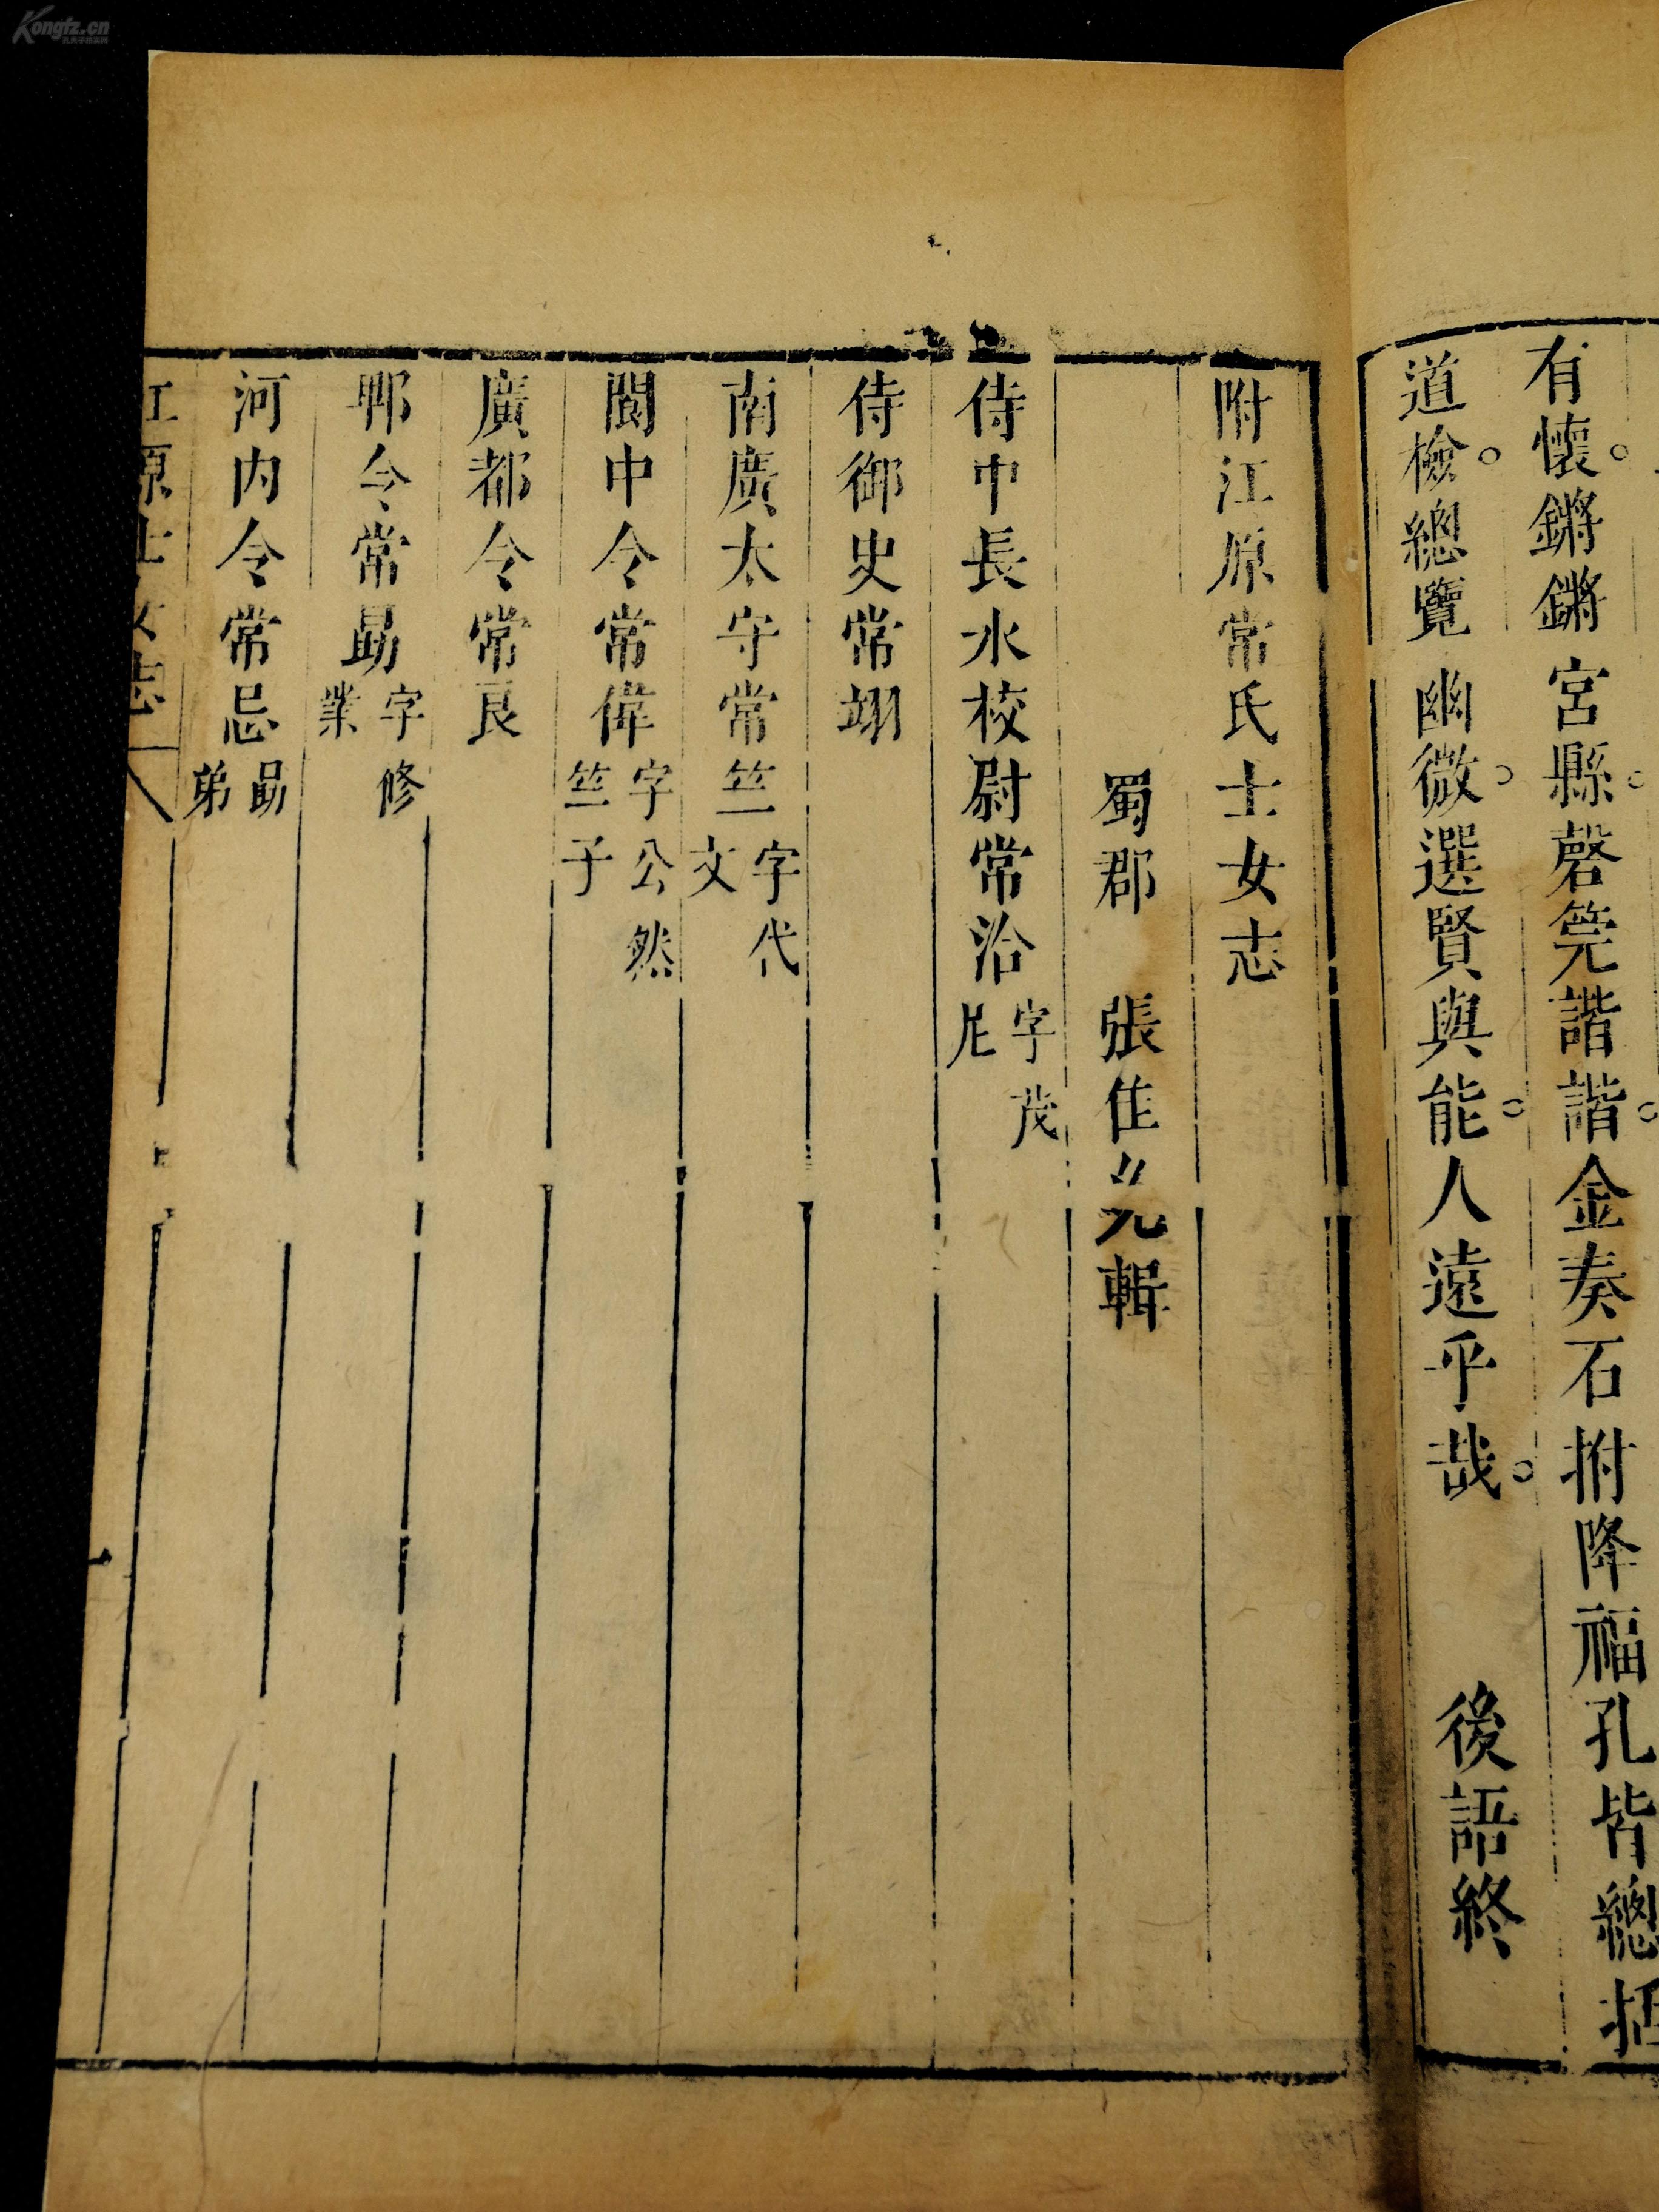 有懷鏘鏘宮縣磬筦諧諧金奏石拊降福孔皆總括
道檢總覽幽微選賢與能人遠乎哉 後語終
附江原常氏士女志
蜀郡 張佳光輯
侍中長水校尉常洽 字茂尼
侍御史常翊
南廣太守常竺 字代文
閬中令常偉 字公然竺子
廣都令常良
郫令常勗 字修業
河內令常忌 勗弟
江原士女志
Kongfz.cn
孔夫子旧书网